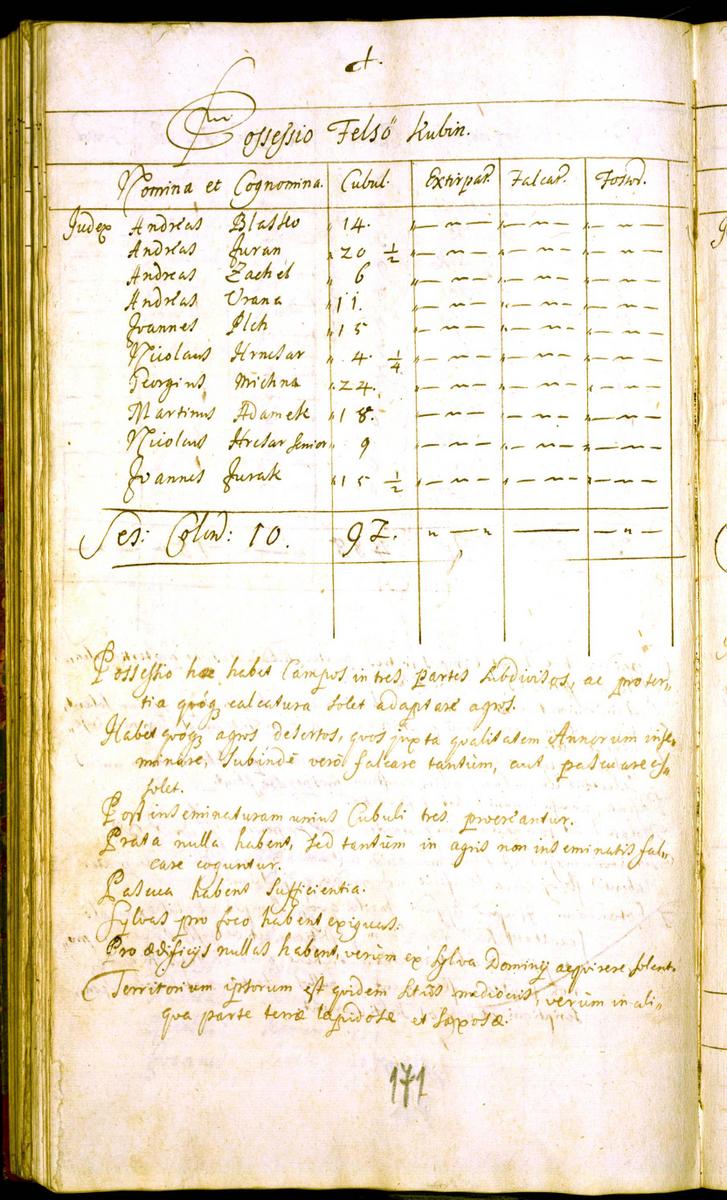 Possessio Felsö Kubin.
Nomina et Cognomina. Cubul. Extirpat. Falcat.
Judex Andreas Blasko 14.
Andreas Juran 20 1/2
Andreas Zachel 6
Andreas Urana 11.
Joannes Plch 15
Nicolaus Hrnczar 4. 1/4
Georgius Michna 24.
Martinus Adamek 18.
Nicolaus Senior 9
Joannes Jurak 15 1/2
10. 97.
Possessio hæc habet Campos in tres partes subdivisos, ac pro ter„
tia quoq₃ calcatura solet adaptare agros.
Habet quoq₃ agros desertos, quos juxta qualitatem Annorum inse„
minare, subindè verò falcare tantùm, aut pascuare
solet.
Post inseminaturam unius Cubuli tres procreantur.
Prata nulla habent, sed tantùm in agris non inseminatis fal„
care coguntur.
Pascua habent sufficientia.
Sylvas pro foco habent exiguas.
Pro ædificijs nullas habent, verùm ex sylva Dominij acquirere solent.
Territorium ipsorum est quidem sitûs mediocris, verùm in ali„
qua parte terræ lapidosæ et saxosæ.
171